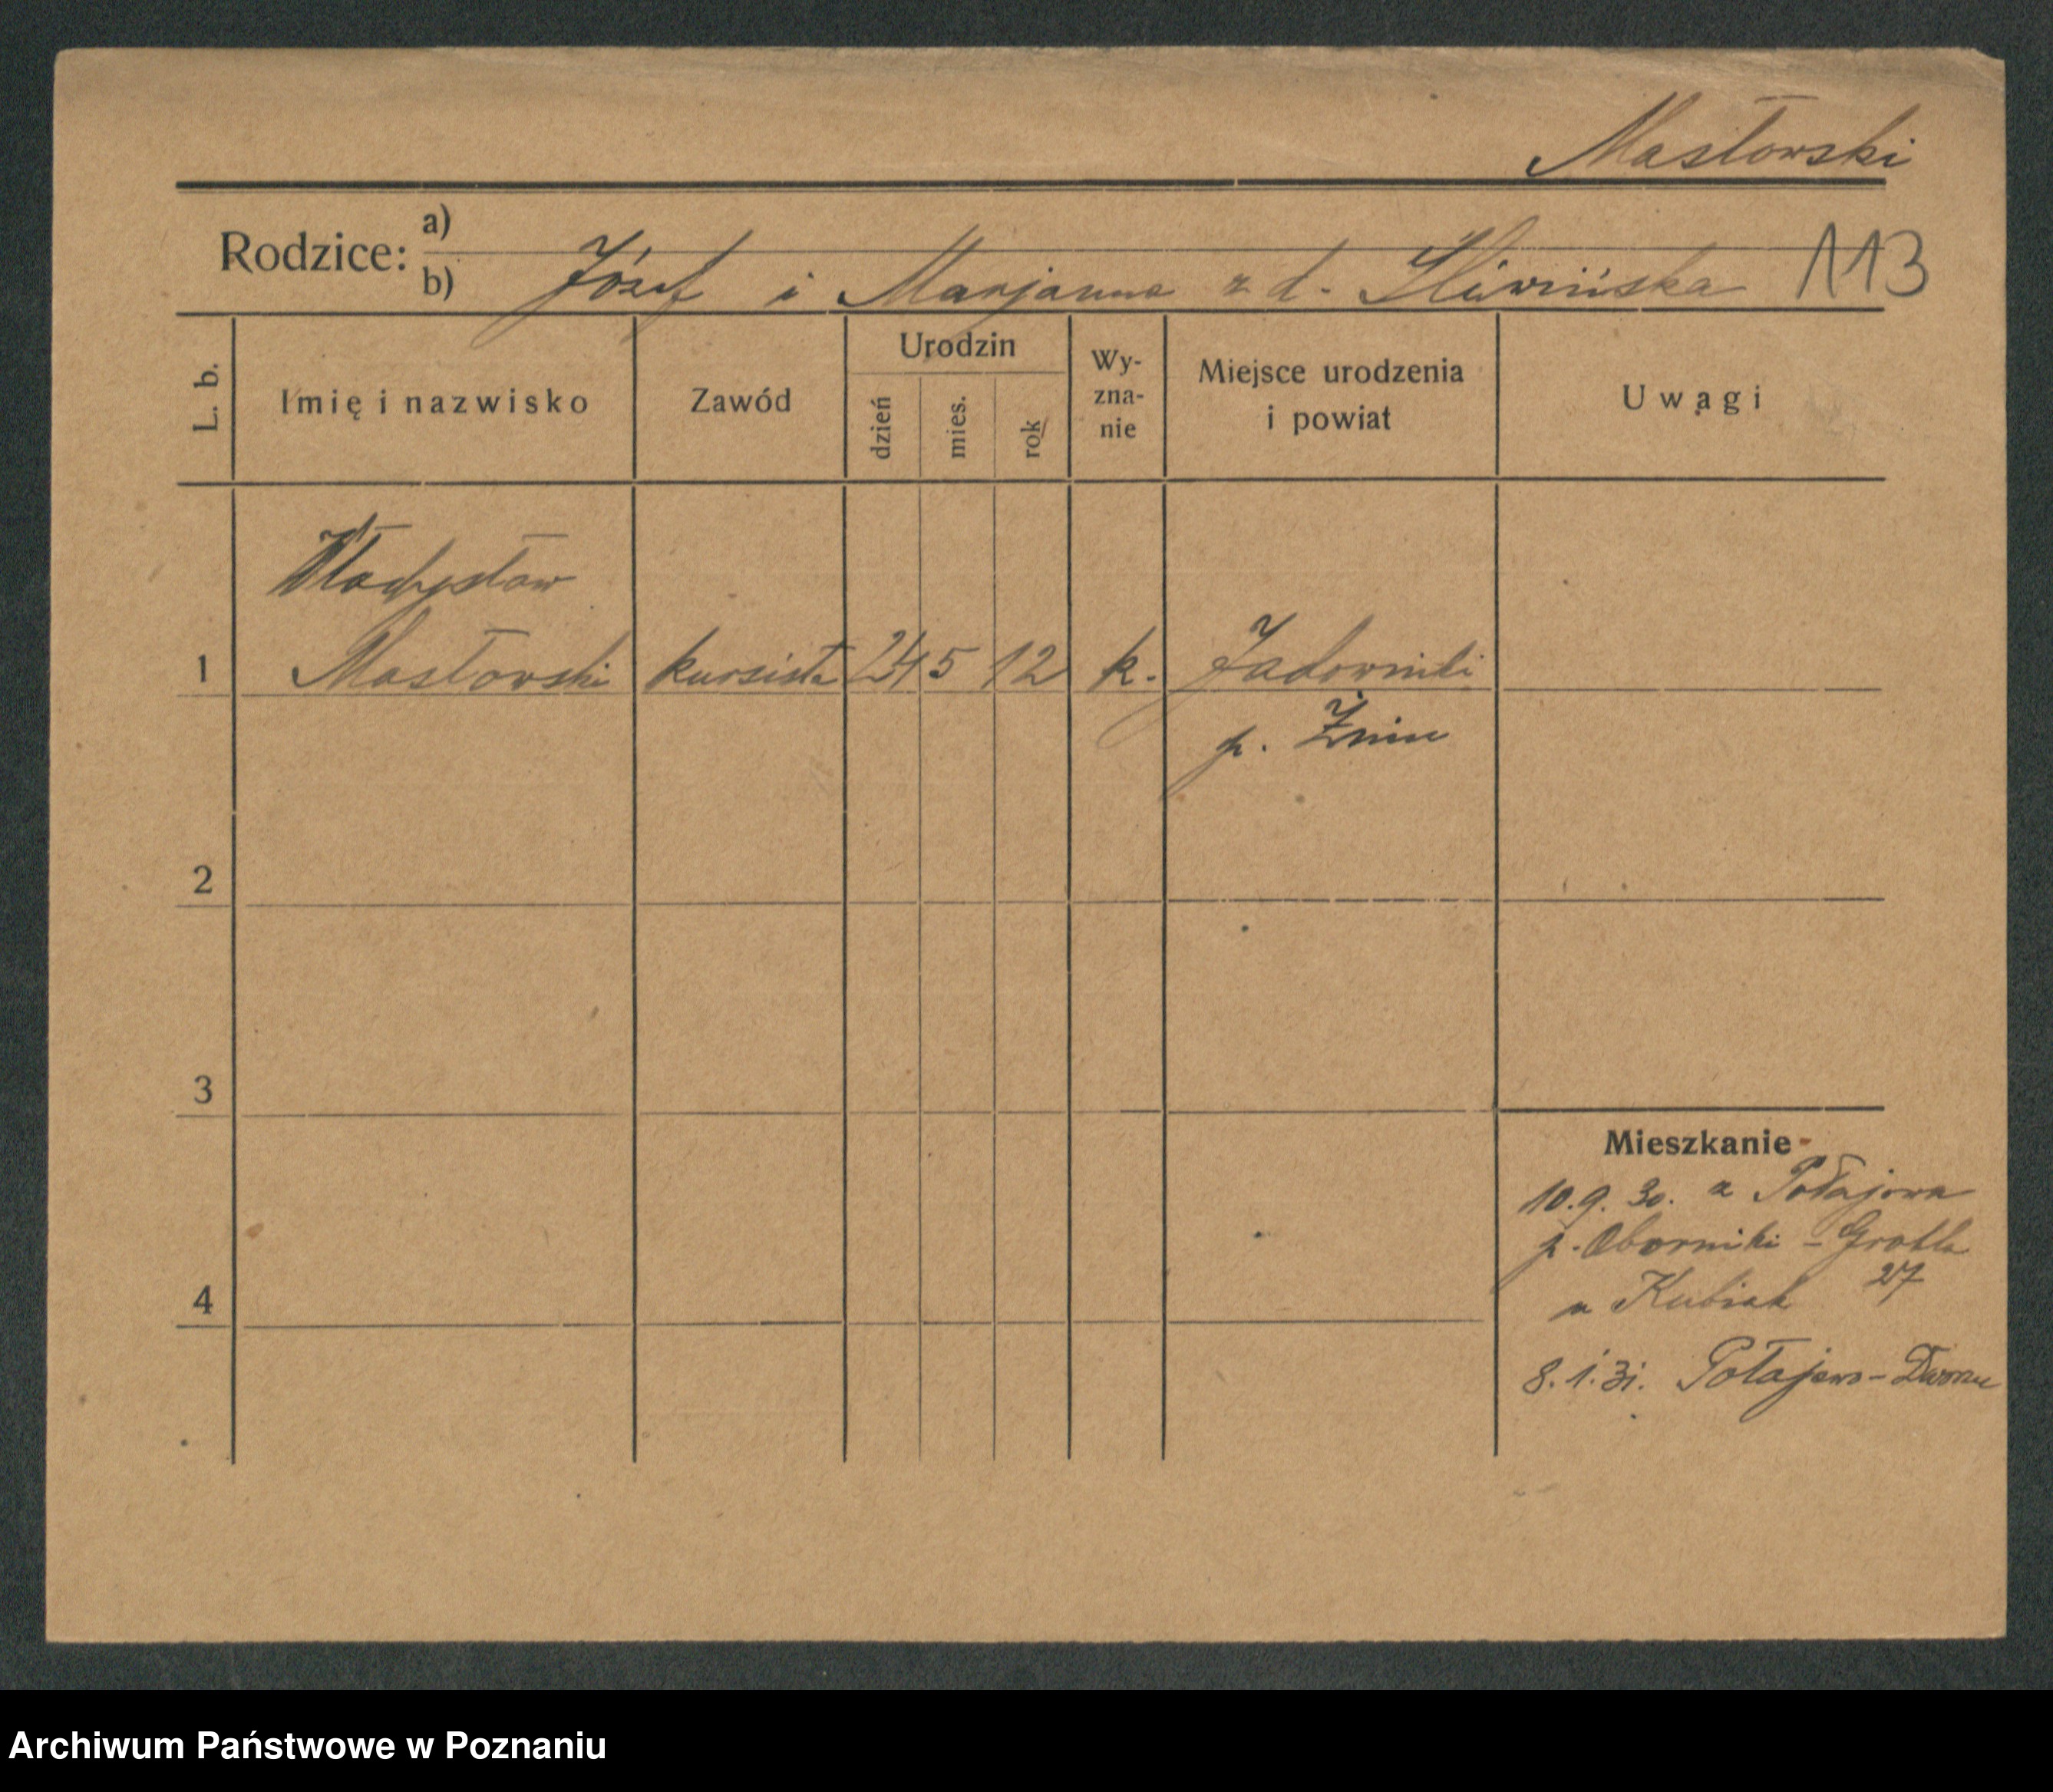 Masłowski
Rodzice: a)
b) Józef i Marjanna z d. Śliwińska 113
L. b.
Imię i nazwisko
Zawód
Urodzin
dzień
mies.
rok
Wy-
zna-
nie
Miejsce urodzenia
i powiat
Uwagi
Władysław
1 Masłowski kursista 24 5 12 k. Jadowniki
p. Żnin
2
3
4
Mieszkanie
10.9.30. z Połajewa
p. Oborniki - Grobla
u Kubiak 27
8.1.31. Połajewo - Dworzec
Archiwum Państwowe w Poznaniu